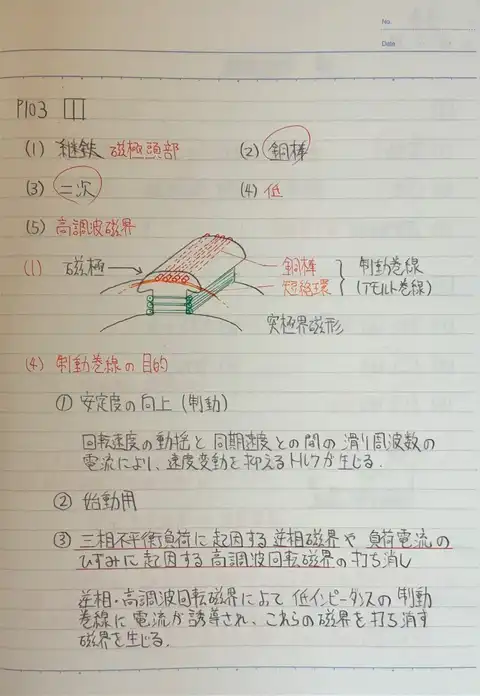 No.
Date
P103 11
(1) 継鉄 磁極頭部 (2) 銅棒
(3) 二次 (4) 低
(5) 高調波磁界
(1) 磁極 銅棒 制動巻線
短絡環 (アモルト巻線)
突極界磁形
(4) 制動巻線の目的
① 安定度の向上 (制動)
回転速度の動揺と同期速度との間の滑り周波数の
電流により、速度変動を抑えるトルクが生じる.
② 始動用
③ 三相不平衡負荷に起因する逆相磁界や負荷電流の
ひずみに起因する高調波回転磁界の打ち消し
逆相・高調波回転磁界によって低インピーダンスの制動
巻線に電流が誘導され、これらの磁界を打ち消す
磁界を生じる.